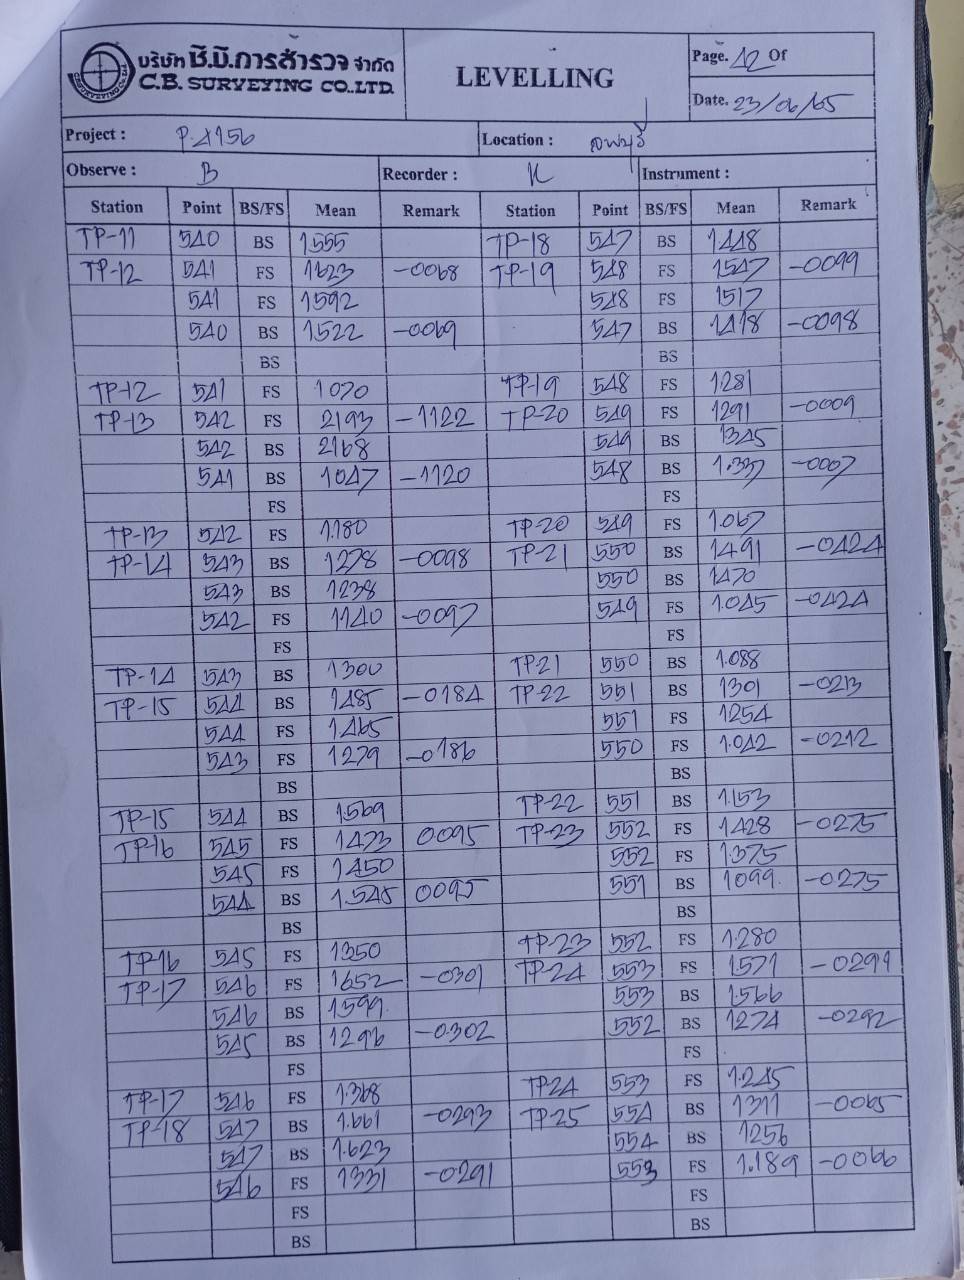 บริษัท ซี.บี.การสำรวจ จำกัด
C.B. SURVEYING CO.,LTD.
LEVELLING
Page. 12 Of
Date. 23/06/65
Project : P-4156 Location : ลพบุรี
Observe : B Recorder : K Instrument :
Station Point BS/FS Mean Remark Station Point BS/FS Mean Remark
TP-11 540 BS 1555 TP-18 547 BS 1448
TP-12 541 FS 1623 -0068 TP-19 548 FS 1547 -0099
541 FS 1592 548 FS 1517
540 BS 1522 -0069 547 BS 1418 -0098
BS BS
TP-12 541 FS 1070 TP-19 548 FS 1281
TP-13 542 FS 2193 -1122 TP-20 549 FS 1291 -0009
542 BS 2168 549 BS 1345
541 BS 1047 -1120 548 BS 1.337 -0007
FS FS
TP-13 542 FS 1.180 TP-20 549 FS 1.067
TP-14 543 BS 1278 -0098 TP-21 550 BS 1491 -0424
543 BS 1238 550 BS 1470
542 FS 1140 -0097 549 FS 1.045 -0424
FS FS
TP-14 543 BS 1300 TP-21 550 BS 1.088
TP-15 544 BS 1485 -0184 TP-22 551 BS 1301 -0213
544 FS 1465 551 FS 1254
543 FS 1279 -0186 550 FS 1.042 -0212
BS BS
TP-15 544 BS 1.569 TP-22 551 BS 1.153
TP-16 545 FS 1473 0095 TP-23 552 FS 1428 -0275
545 FS 1450 552 FS 1.375
544 BS 1.545 0095 551 BS 1099. -0275
BS BS
TP-16 545 FS 1350 TP-23 552 FS 1.280
TP-17 546 FS 1652 -0301 TP-24 553 FS 1.571 -0291
546 BS 1599. 553 BS 1.566
545 BS 1296 -0302 552 BS 1274 -0292
FS FS
TP-17 546 FS 1.368 TP-24 553 FS 1.245
TP-18 547 BS 1.661 -0293 TP-25 554 BS 1311 -0065
547 BS 1.623 554 BS 1256
546 FS 1331 -0291 553 FS 1.189 -0066
FS FS
BS BS